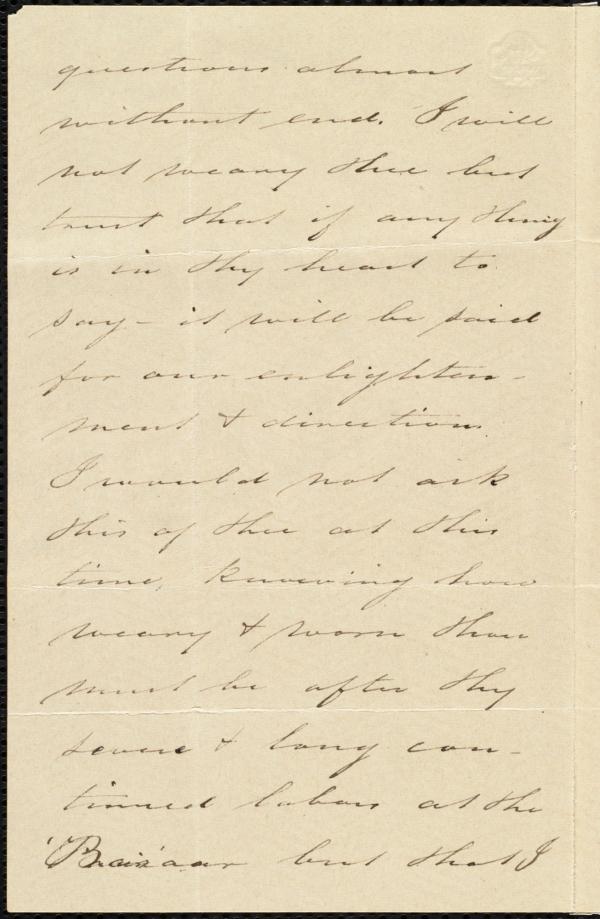 questions almost
without end. I will
not weary thee but
trust that if any thing
is in thy heart to
say - it will be said
for our enlighten-
ment & direction.
I would not ask
this of thee at this
time, knowing how
weary & worn thou
must be after thy
severe & long con-
tinued labors at the
'Bazaar' but that I